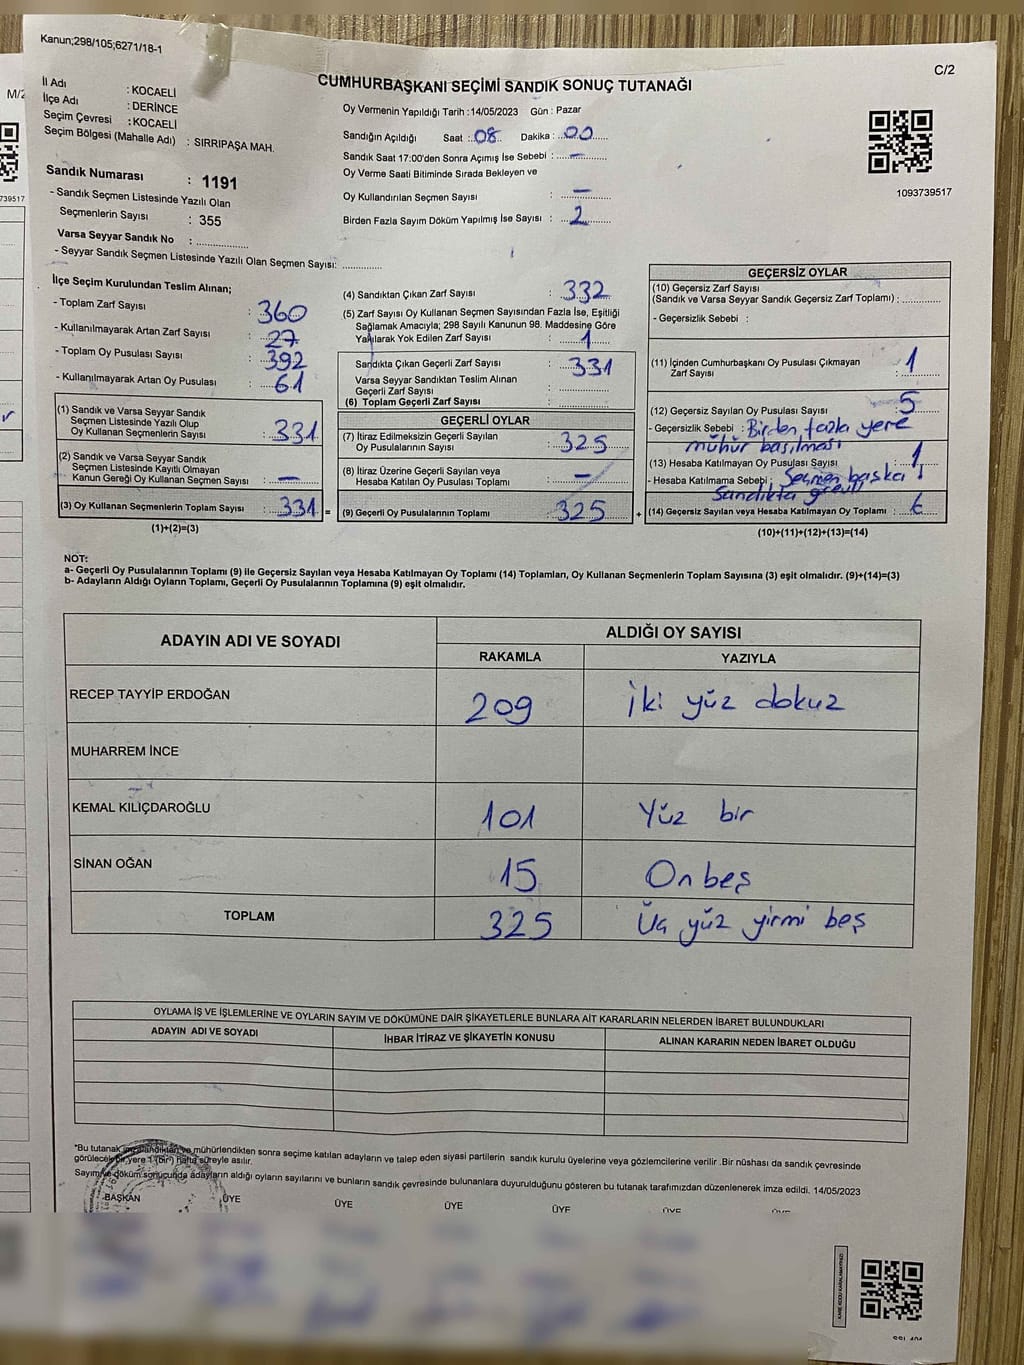 Kanun;298/105;6271/18-1
C/2
M/2
CUMHURBAŞKANI SEÇİMİ SANDIK SONUÇ TUTANAĞI
İl Adı : KOCAELİ
İlçe Adı : DERİNCE
Seçim Çevresi : KOCAELİ
Seçim Bölgesi (Mahalle Adı) : SIRRIPAŞA MAH.
Sandık Numarası : 1191
- Sandık Seçmen Listesinde Yazılı Olan
Seçmenlerin Sayısı : 355
Varsa Seyyar Sandık No : ................
- Seyyar Sandık Seçmen Listesinde Yazılı Olan Seçmen Sayısı: ............
Oy Vermenin Yapıldığı Tarih :14/05/2023 Gün : Pazar
Sandığın Açıldığı Saat : 08 Dakika : 00
Sandık Saat 17:00'den Sonra Açımış İse Sebebi : –
Oy Verme Saati Bitiminde Sırada Bekleyen ve
Oy Kullandırılan Seçmen Sayısı : –
Birden Fazla Sayım Döküm Yapılmış İse Sayısı : 2
1093739517
739517
İlçe Seçim Kurulundan Teslim Alınan;
- Toplam Zarf Sayısı : 360
- Kullanılmayarak Artan Zarf Sayısı : 27
- Toplam Oy Pusulası Sayısı : 392
- Kullanılmayarak Artan Oy Pusulası : 61
(1) Sandık ve Varsa Seyyar Sandık
Seçmen Listesinde Yazılı Olup
Oy Kullanan Seçmenlerin Sayısı : 331
(2) Sandık ve Varsa Seyyar Sandık
Seçmen Listesinde Kayıtlı Olmayan
Kanun Gereği Oy Kullanan Seçmen Sayısı : –
(3) Oy Kullanan Seçmenlerin Toplam Sayısı : 331 =
(1)+(2)=(3)
(4) Sandıktan Çıkan Zarf Sayısı : 332
(5) Zarf Sayısı Oy Kullanan Seçmen Sayısından Fazla İse, Eşitliği
Sağlamak Amacıyla; 298 Sayılı Kanunun 98. Maddesine Göre
Yakılarak Yok Edilen Zarf Sayısı : 1
Sandıkta Çıkan Geçerli Zarf Sayısı : 331
Varsa Seyyar Sandıktan Teslim Alınan
Geçerli Zarf Sayısı : ................
(6) Toplam Geçerli Zarf Sayısı : ................
GEÇERLİ OYLAR
(7) İtiraz Edilmeksizin Geçerli Sayılan
Oy Pusulalarının Sayısı : 325
(8) İtiraz Üzerine Geçerli Sayılan veya
Hesaba Katılan Oy Pusulası Toplamı : –
(9) Geçerli Oy Pusulalarının Toplamı : 325 +
GEÇERSİZ OYLAR
(10) Geçersiz Zarf Sayısı
(Sandık ve Varsa Seyyar Sandık Geçersiz Zarf Toplamı) : ............
- Geçersizlik Sebebi :
(11) İçinden Cumhurbaşkanı Oy Pusulası Çıkmayan
Zarf Sayısı : 1
(12) Geçersiz Sayılan Oy Pusulası Sayısı : 5
- Geçersizlik Sebebi : Birden fazla yere
mühür basılması
(13) Hesaba Katılmayan Oy Pusulası Sayısı : 1
- Hesaba Katılmama Sebebi : Seçmen başka
Sandıkta görevli
(14) Geçersiz Sayılan veya Hesaba Katılmayan Oy Toplamı :
(10)+(11)+(12)+(13)=(14)
NOT:
a- Geçerli Oy Pusulalarının Toplamı (9) ile Geçersiz Sayılan veya Hesaba Katılmayan Oy Toplamı (14) Toplamları, Oy Kullanan Seçmenlerin Toplam Sayısına (3) eşit olmalıdır. (9)+(14)=(3)
b- Adayların Aldığı Oyların Toplamı, Geçerli Oy Pusulalarının Toplamına (9) eşit olmalıdır.
ADAYIN ADI VE SOYADI ALDIĞI OY SAYISI
RAKAMLA YAZIYLA
RECEP TAYYİP ERDOĞAN 209 İki yüz dokuz
MUHARREM İNCE
KEMAL KILIÇDAROĞLU 101 Yüz bir
SİNAN OĞAN 15 On beş
TOPLAM 325 Üç yüz yirmi beş
OYLAMA İŞ VE İŞLEMLERİNE VE OYLARIN SAYIM VE DÖKÜMÜNE DAİR ŞİKAYETLERLE BUNLARA AİT KARARLARIN NELERDEN İBARET BULUNDUKLARI
ADAYIN ADI VE SOYADI İHBAR İTİRAZ VE ŞİKAYETİN KONUSU ALINAN KARARIN NEDEN İBARET OLDUĞU
*Bu tutanak imzalandıktan ve mühürlendikten sonra seçime katılan adayların ve talep eden siyasi partilerin sandık kurulu üyelerine veya gözlemcilerine verilir .Bir nüshası da sandık çevresinde
görülecek bir yere 1 (bir) hafta süreyle asılır.
Sayım ve döküm sonucunda adayların aldığı oyların sayılarını ve bunların sandık çevresinde bulunanlara duyurulduğunu gösteren bu tutanak tarafımızdan düzenlenerek imza edildi. 14/05/2023
BAŞKAN ÜYE ÜYE ÜYE ÜYE ÜYE ÜYE